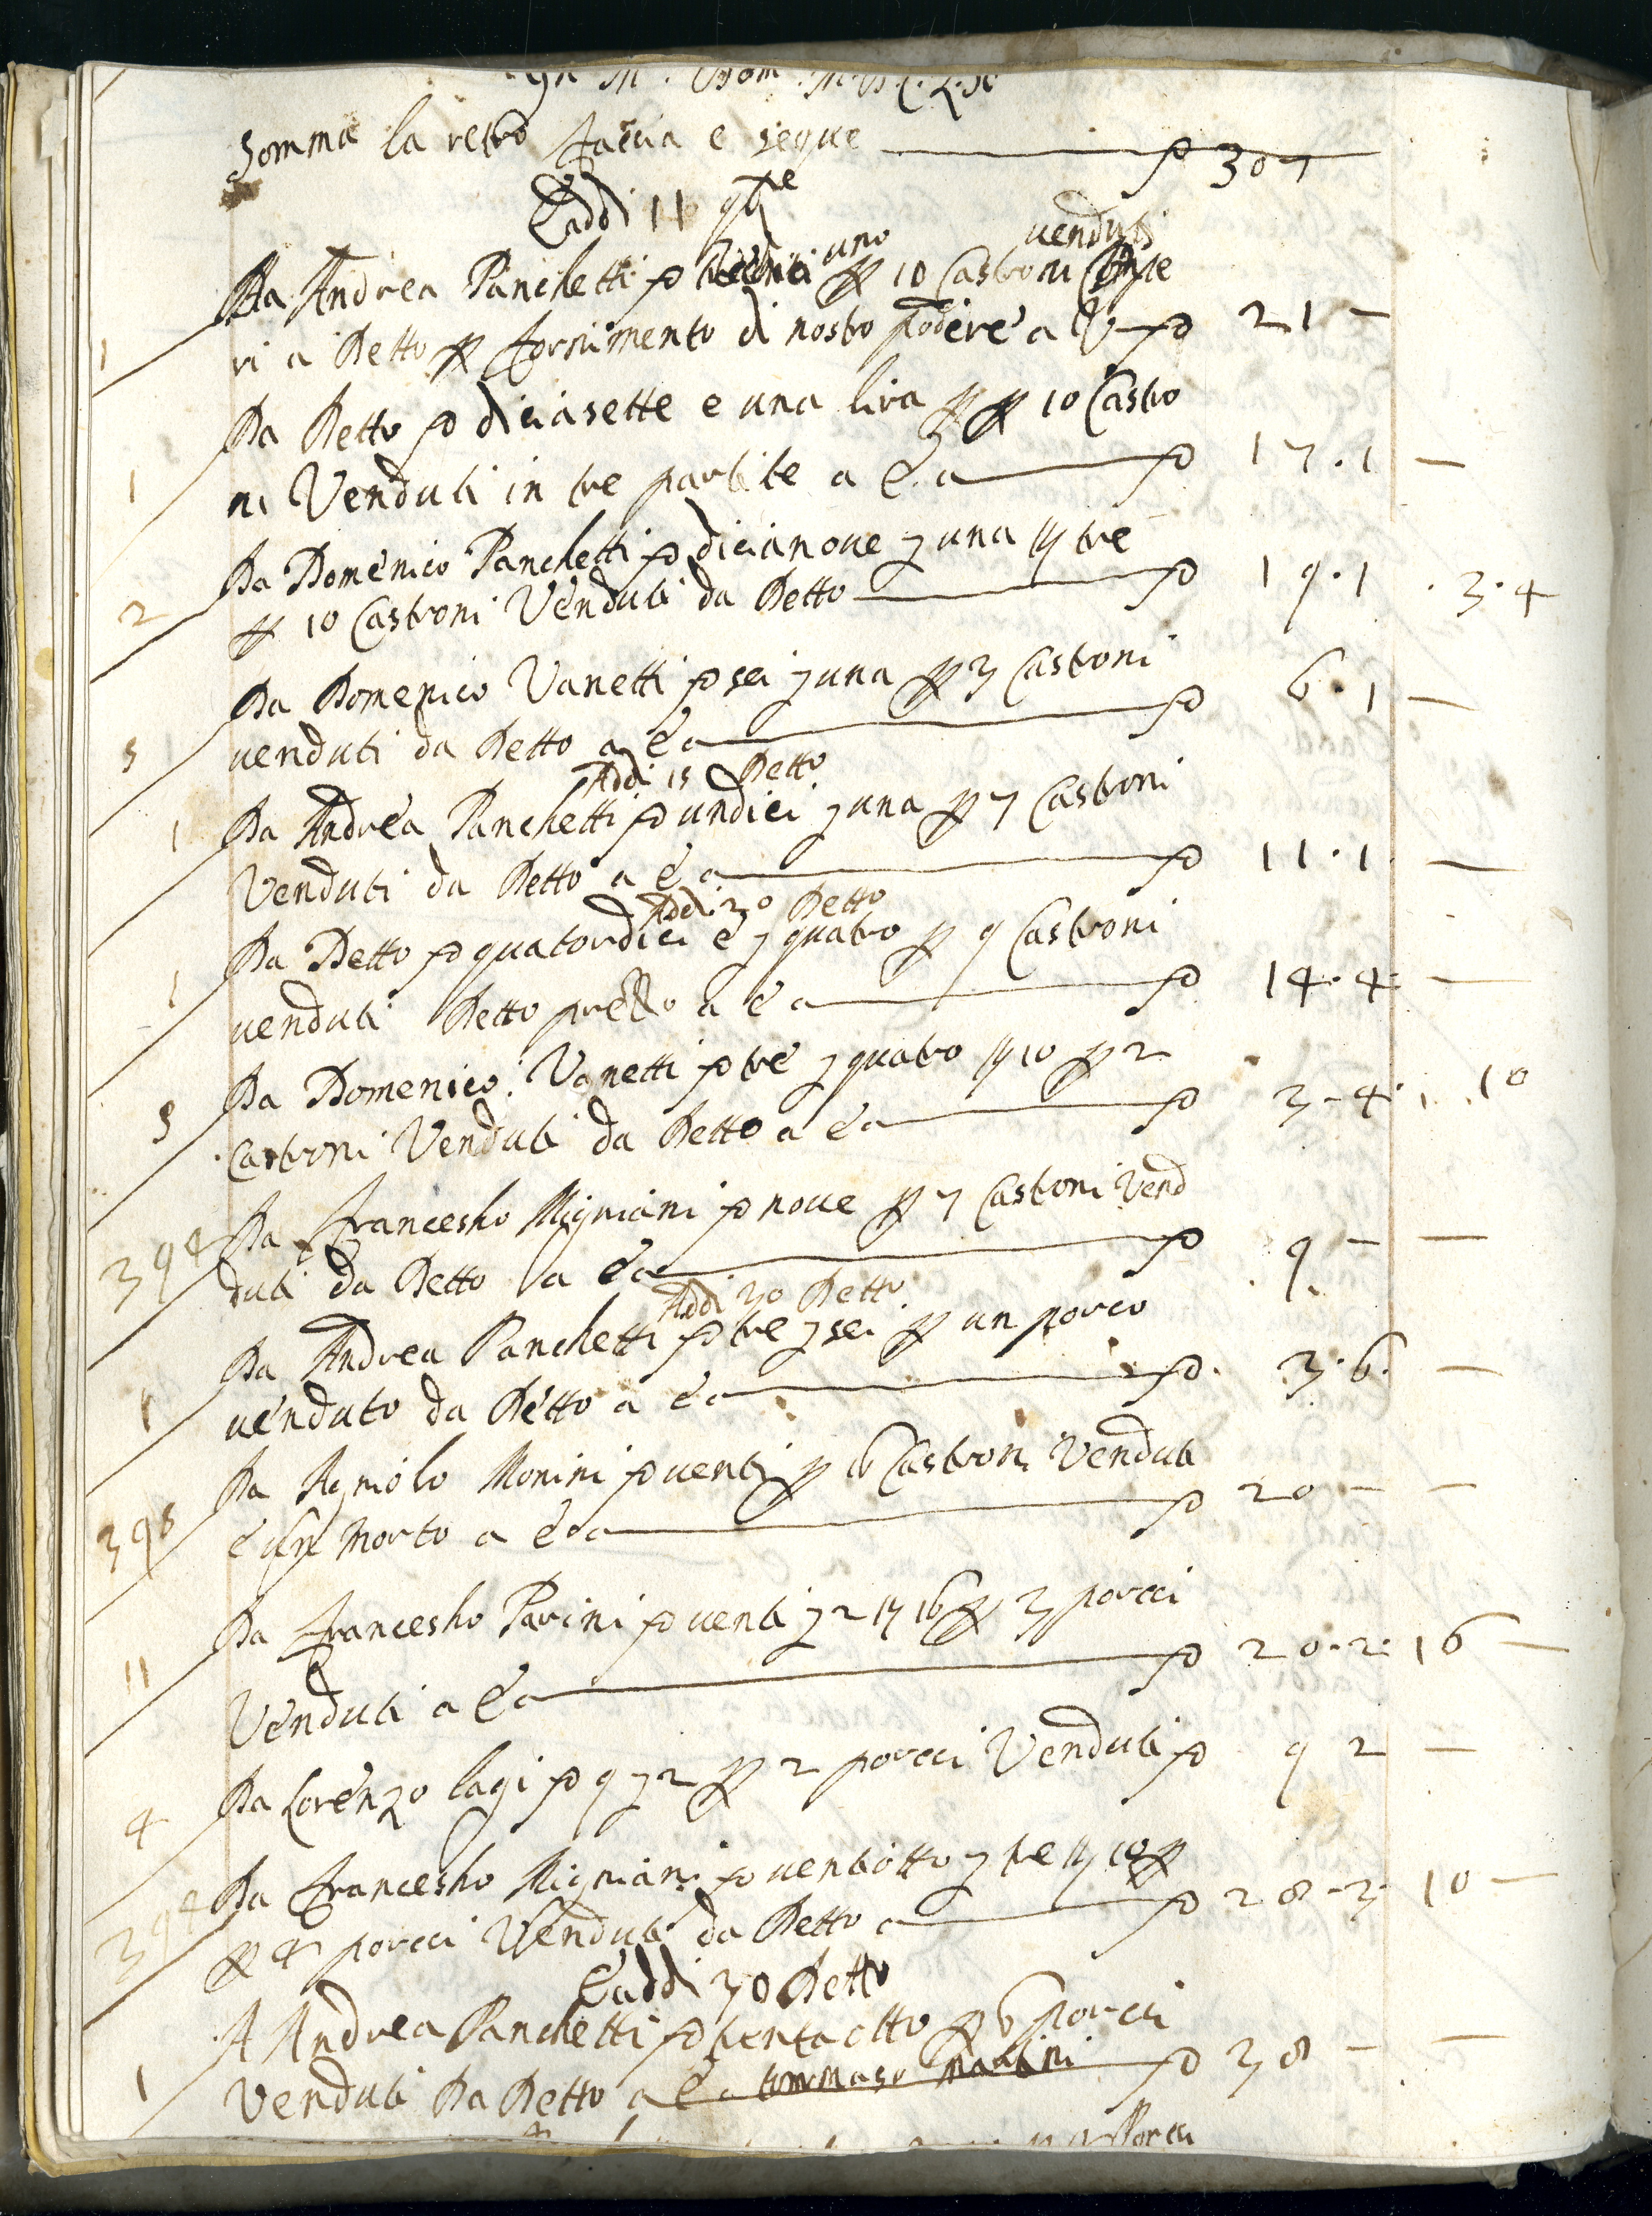 Somma la retro faccia e segue — ₯ 307
E addi 11 9bre
venduti
1 Da Andrea Panchetti ₯ uno p 10 Castroni
ri a Detto p fornimento di nostro podere a ₯ 21 —
1 Da Detto ₯ diciasette e una lira p 10 Castro
ni Venduti in tre partite a e a — ₯ 17.1 —
2 Da Domenico Panchetti ₯ dicianove z una tre
p 10 Castroni Venduti da Detto — ₯ 19.1 . 3.4
5 Da Domenico Vanetti ₯ sei z una p 3 Castroni
venduti da Detto a e a — ₯ 6.1 —
Addi 15 Detto
1 Da Andrea Panchetti ₯ undici z una p 7 Castroni
Venduti da Detto a e a — ₯ 11.1 —
Addi 30 Detto
1 Da Detto ₯ quatordici e z quatro p 9 Castroni
venduti Detto prezzo a e a — ₯ 14.4 —
5 Da Domenico Vanetti ₯ tre z quatro 10 p 2
Castroni Venduti da Detto a e a — ₯ 3.4 . 10
394 Da Francesho Migniani ₯ nove p 7 Castroni Vend
duti da Detto a e a — ₯ 9 — —
Addi 30 Detto
1 Da Andrea Panchetti ₯ tre z sei p un porco
venduto da Detto a e a — ₯ 3.6 —
395 Da Agniolo Monini ₯ venti p 16 Castroni Venduti
e un morto a e a — ₯ 20 — —
11 Da Francesho Parini ₯ venti z 2 16 p 3 porcci
Venduti a e a — ₯ 20.2. 16 —
4 Da Lorenzo lagi ₯ 9 z 2 p 2 porcci Venduti ₯ 9 2 —
394 Da Francesho Migniani ₯ ventiotto z tre 10 p
p 4 porcci Venduti da Detto a — ₯ 28.3. 10 —
E addi 30 Detto
1 A Andrea Panchetti ₯ trenta otto p 6 porcci
Venduti Da Detto a e a tommaso martini ₯ 38 — —
Porcci